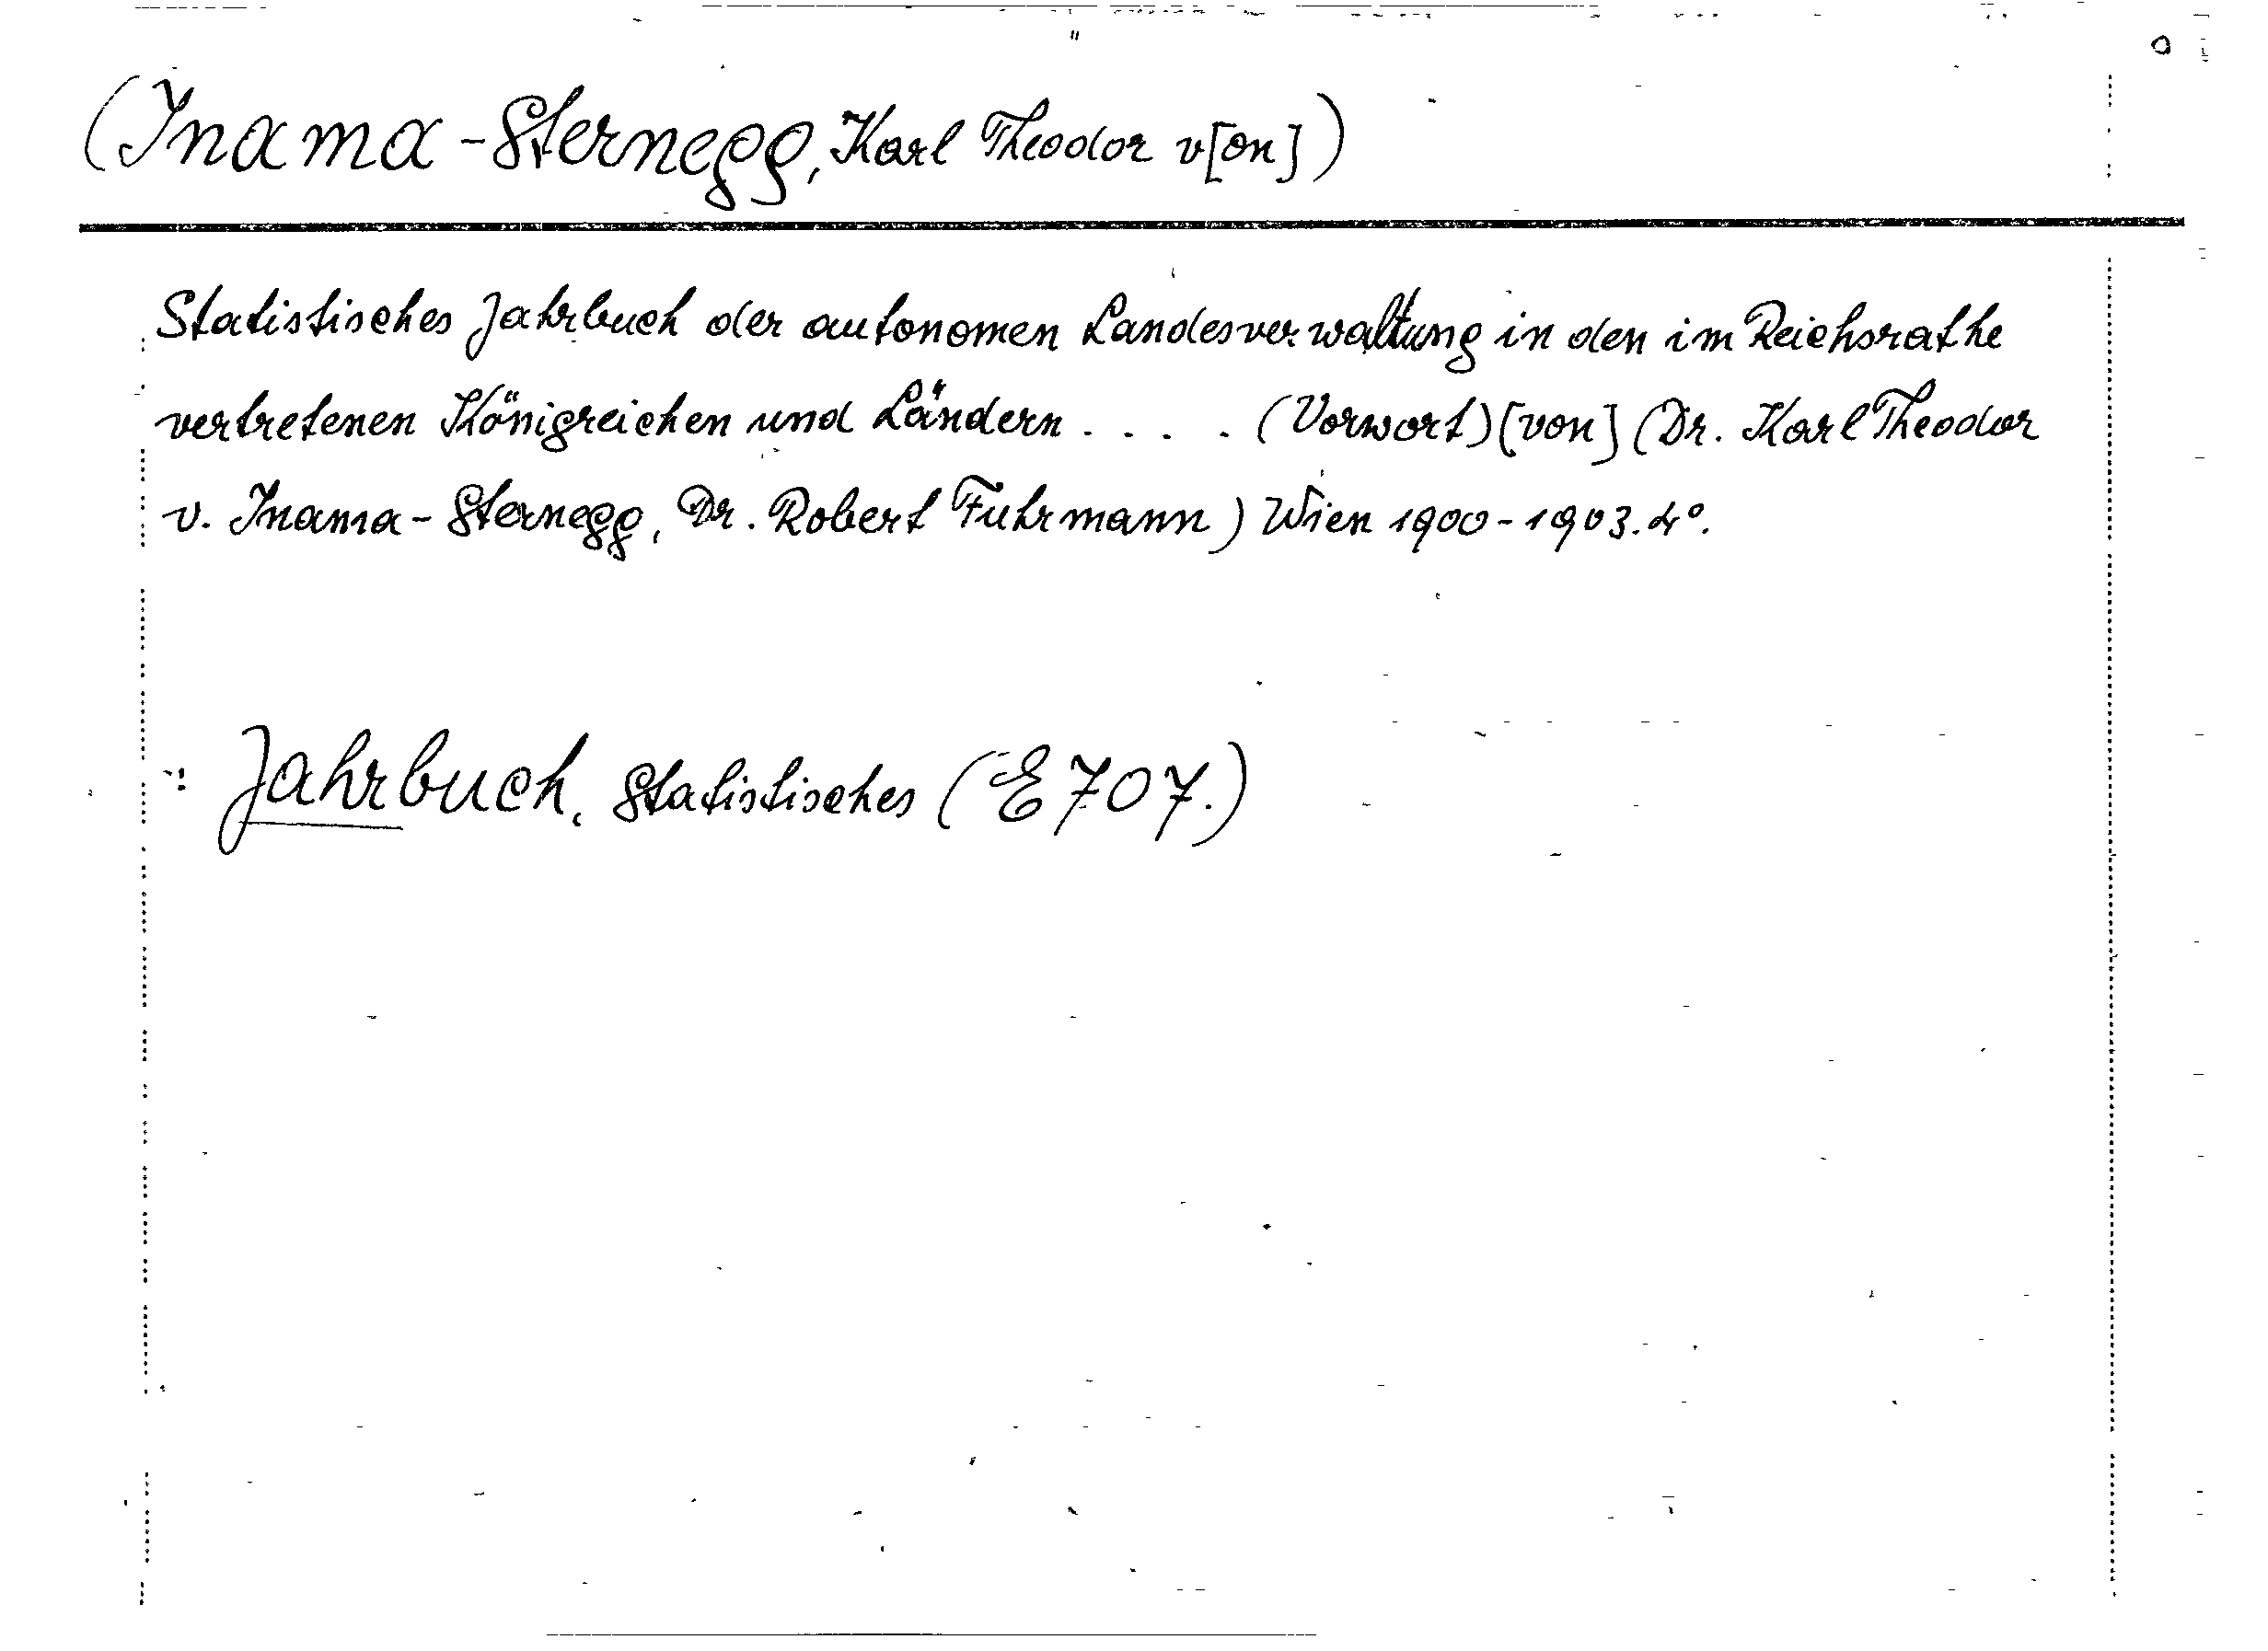 (Inama-Sternegg, Karl Theodor v[on])
Statistisches Jahrbuch der autonomen Landesverwaltung in den im Reichsrathe
vertretenen Königreichen und Ländern . . . . (Vorwort) [von] (Dr. Karl Theodor
v. Inama-Sternegg, Dr. Robert Fuhrmann) Wien 1900-1903. 4°.
: Jahrbuch, Statistisches (E 707.)